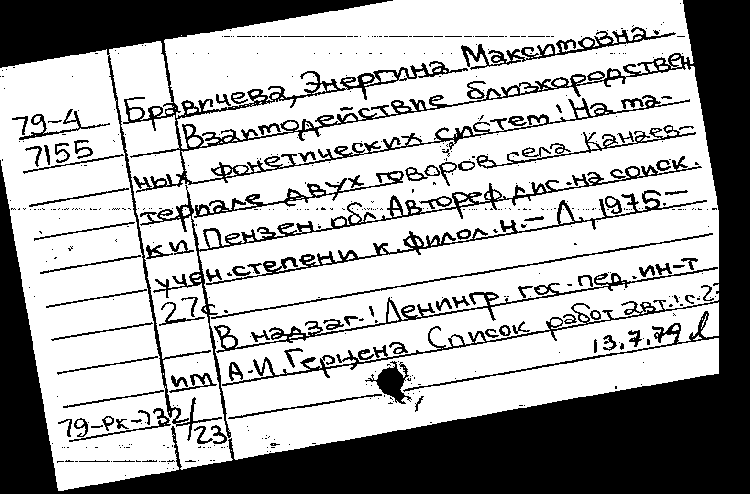 79-4 Бравичева, Энергина Максимовна.
7155 Взаимодействие близкородствен
ных фонетических систем: На ма-
териале двух говоров села Канаев-
ки Пензен. обл. Автореф дис. на соиск.
учен. степени к. филол. н. — Л., 1975. —
27с.
В надзаг.: Ленингр. гос. пед. ин-т
им А.И. Герцена. Список работ авт.: с. 27
13.7.79
79-РК-732/23